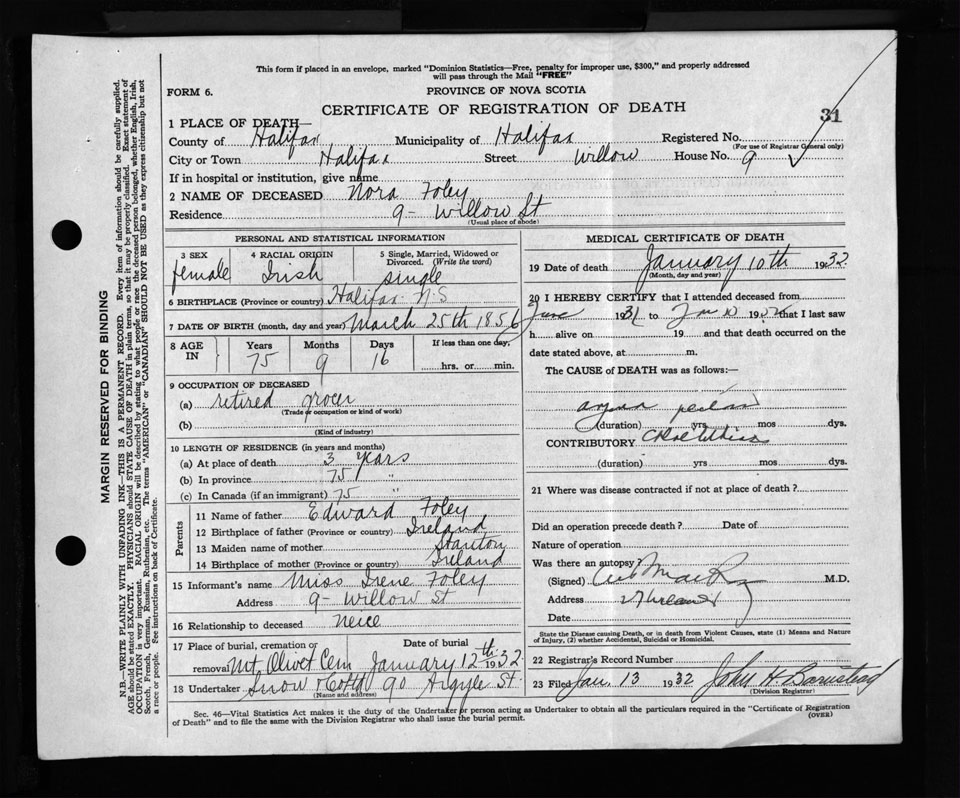 This form if placed in an envelope, marked "Dominion Statistics—Free, penalty for improper use, $300," and properly addressed
will pass through the Mail "FREE"
FORM 6.
PROVINCE OF NOVA SCOTIA
CERTIFICATE OF REGISTRATION OF DEATH
31
1 PLACE OF DEATH—
County of Halifax Municipality of Halifax Registered No.
(For use of Registrar General only)
City or Town Halifax Street Willow House No. 9
If in hospital or institution, give name
2 NAME OF DECEASED Nora Foley
Residence 9- Willow St
(Usual place of abode)
PERSONAL AND STATISTICAL INFORMATION
3 SEX 4 RACIAL ORIGIN 5 Single, Married, Widowed or Divorced. (Write the word)
female Irish single
6 BIRTHPLACE (Province or country) Halifax N.S
7 DATE OF BIRTH (month, day and year) March 25th 1856
8 AGE IN Years Months Days If less than one day.
75 9 16 hrs. or min.
9 OCCUPATION OF DECEASED
(a) retired grocer
(Trade or occupation or kind of work)
(b)
(Kind of industry)
10 LENGTH OF RESIDENCE (in years and months)
(a) At place of death 3 years
(b) In province 75 "
(c) In Canada (if an immigrant) 75 "
Parents
11 Name of father Edward Foley
12 Birthplace of father (Province or country) Ireland
13 Maiden name of mother Stanton
14 Birthplace of mother (Province or country) Ireland
15 Informant's name Miss Irene Foley
Address 9- Willow St
16 Relationship to deceased neice
17 Place of burial, cremation or Date of burial
removal Mt Olivet Cem January 12th 1932
18 Undertaker Snow & Co Ltd 90 Argyle St.
(Name and address)
MEDICAL CERTIFICATE OF DEATH
19 Date of death January 10th 1932
(Month, day and year)
20 I HEREBY CERTIFY that I attended deceased from
June 1931 to Jan 10 1932 that I last saw
h alive on 19 and that death occurred on the
date stated above, at m.
The CAUSE of DEATH was as follows:—
(duration) yrs mos dys.
CONTRIBUTORY
(duration) yrs mos dys.
21 Where was disease contracted if not at place of death?
Did an operation precede death? Date of
Nature of operation
Was there an autopsy?
(Signed) M.D.
Address
Date
State the Disease causing Death, or in death from Violent Causes, state (1) Means and Nature
of Injury, (2) whether Accidental, Suicidal or Homicidal.
22 Registrar's Record Number
23 Filed Jan. 13 1932 John H Barnstead
(Division Registrar)
Sec. 46—Vital Statistics Act makes it the duty of the Undertaker or person acting as Undertaker to obtain all the particulars required in the "Certificate of Registration
of Death" and to file the same with the Division Registrar who shall issue the burial permit.
(OVER)
MARGIN RESERVED FOR BINDING
N.B.—WRITE PLAINLY WITH UNFADING INK—THIS IS A PERMANENT RECORD. Every item of information should be carefully supplied.
AGE should be stated EXACTLY. PHYSICIANS should STATE CAUSE OF DEATH in plain terms, so that it may be properly classified. Exact statement of
OCCUPATION is very important. RACIAL ORIGIN will be described by stating to what people or race the deceased person belonged, whether English, Irish,
Scotch, French, German, Russian, Ruthenian, etc. The terms "AMERICAN" or "CANADIAN" SHOULD NOT BE USED as they express citizenship but not
a race or people. See instructions on back of Certificate.